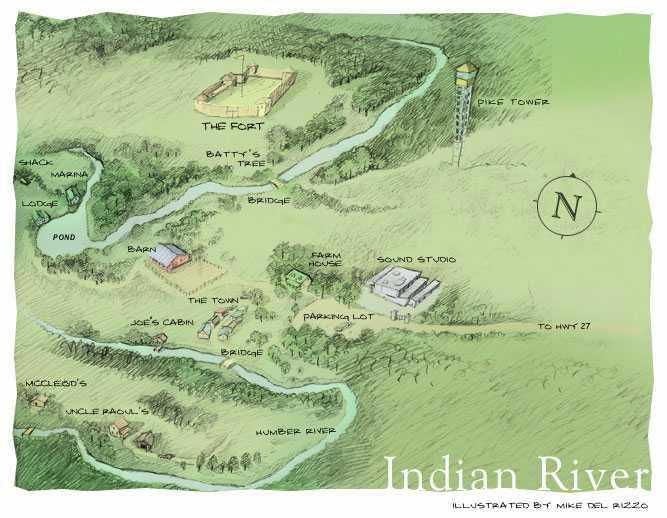 PIKE TOWER
THE FORT
BATTY'S
TREE
SHACK
MARINA
LODGE
BRIDGE
N
POND
BARN
FARM
HOUSE
SOUND STUDIO
THE TOWN
JOE'S CABIN
PARKING LOT
TO HWY 27
BRIDGE
MCCLEOD'S
UNCLE RAOUL'S
HUMBER RIVER
Indian River
ILLUSTRATED BY MIKE DEL RIZZO